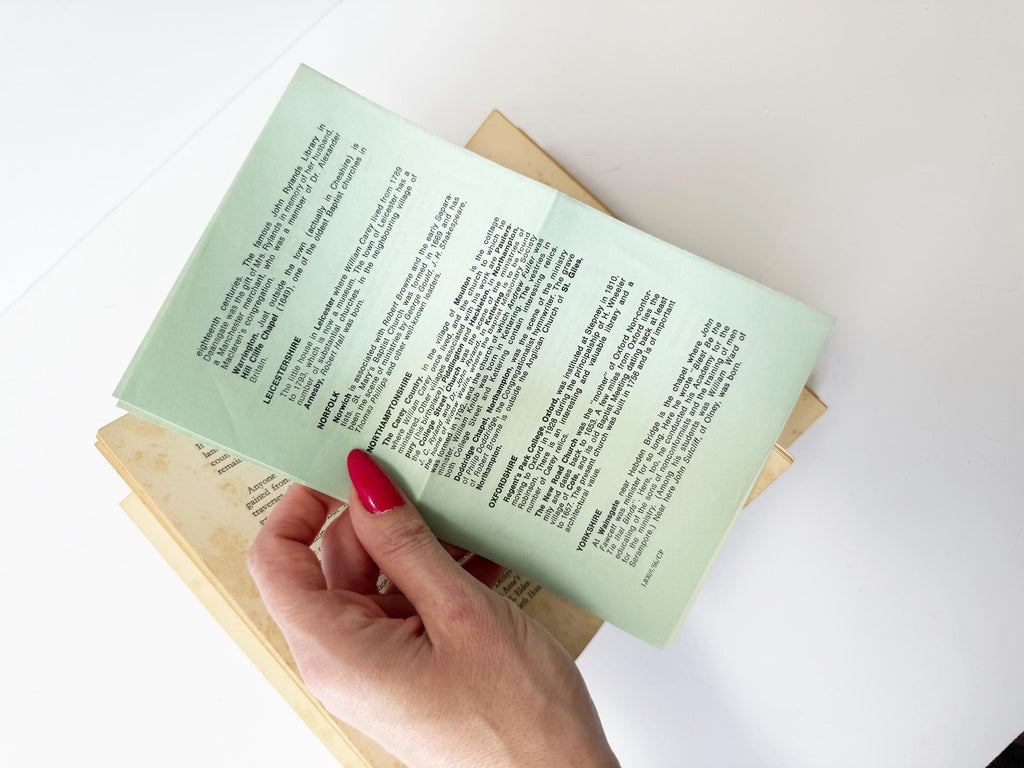 eighteenth centuries. The famous John Rylands Library in
Deansgate was the gift of Mrs. Rylands in memory of her husband,
a Manchester merchant, who was a member of Dr. Alexander
Maclaren's congregation.
Warrington. Just outside the town (actually in Cheshire) is
Hill Cliffe Chapel (1649), one of the oldest Baptist churches in
Britain.
LEICESTERSHIRE
The little house in Leicester where William Carey lived from 1789
to 1793, which is now a museum. The town of Leicester has a
number of substantial churches. In the neighbouring village of
Arnesby, Robert Hall was born.
NORFOLK
Norwich is associated with Robert Browne and the early Separa-
tists. St. Mary's Baptist Church was formed in 1669 and has
been the scene of ministries by George Gould, J. H. Shakespeare,
Thomas Phillips and other well-known leaders.
NORTHAMPTONSHIRE
The Carey Country, in the village of Moulton is the cottage
where William Carey once lived, and the church to which he
ministered. Other places associated with his work are Paulers-
pury (his birthplace), Piddington and Hackleton.
the College Street Church
J. C. Ryland and John
the home of Widow Wallis, where the
was formed in 1792, and the church of which Andrew Fuller was
minister. William Knibb was born in Kettering. The vestries in
both College Street and Kettering contain interesting relics.
Doddridge Chapel, Northampton, was the scene of the ministry
of Philip Doddridge, the Congregationalist hymnwriter. The grave
of Robert Browne is outside the Anglican Church of St. Giles,
Northampton.
OXFORDSHIRE
Regent's Park College, Oxford, was instituted at Stepney in 1810,
moving to Oxford in 1928 during the principalship of H. Wheeler
Robinson. There is an interesting and valuable library and a
number of Carey relics.
The New Road Church was the "mother" of Oxford Nonconfor-
mity and dates back to 1653. A few miles from Oxford lies the
village of Cote, and its old Baptist Meeting dating back at least
to 1657. The present church was built in 1756 and is of important
architectural value.
YORKSHIRE
At Wainsgate near Hebden Bridge is the chapel where John
Fawcett was minister for so long. Here he wrote "Blest Be the
Tie that Binds". Here, too, he conducted his Academy for the
educating of the sons of Nonconformists and the training of men
for the ministry. (Among his students was William Ward of
Serampore.) Near here John Sutcliff, of Olney, was born.
Anyone
gained from
traverse